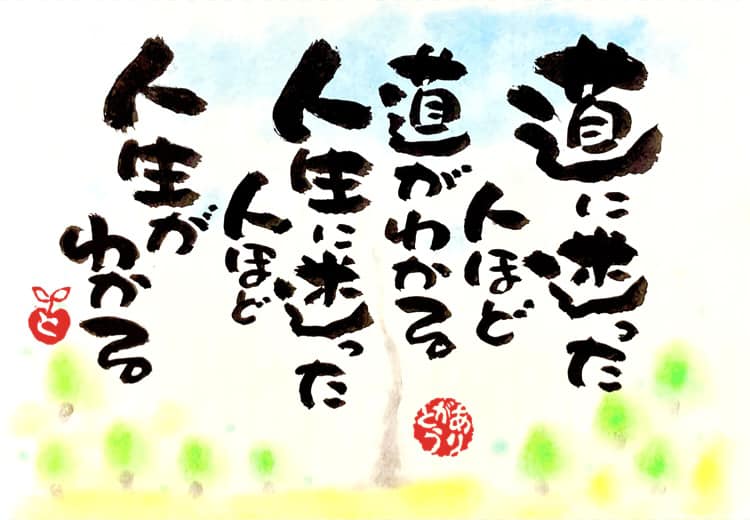 道に迷った
人ほど
道がわかる。
人生に迷った
人ほど
人生が
わかる。
ありがとう
と